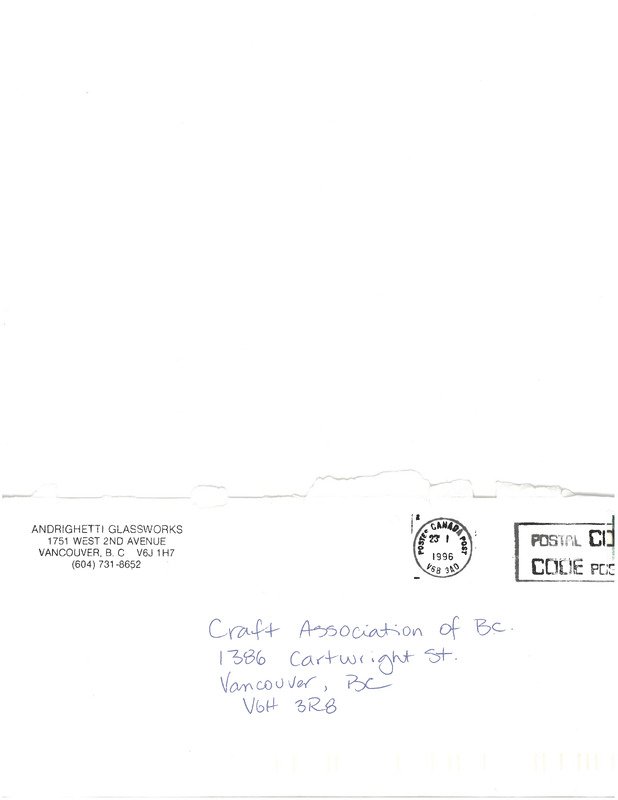 ANDRIGHETTI GLASSWORKS
1751 WEST 2ND AVENUE
VANCOUVER, B. C V6J 1H7
(604) 731-8652
POSTES CANADA POST
23 I
1996
V6B 3A0
POSTAL CO
CODE POS
Craft Association of BC.
1386 Cartwright St.
Vancouver, BC
V6H 3R8